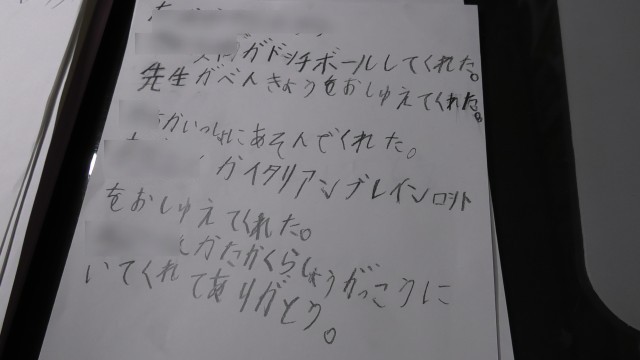 ガドッチボールしてくれた。
先生がべんきょうをおしゅえてくれた。
がいっしょにあそんでくれた。
ガイタリアンブレインロット
をおしゅえてくれた。
がたかくらしょうがっこうに
いてくれてありがとう。